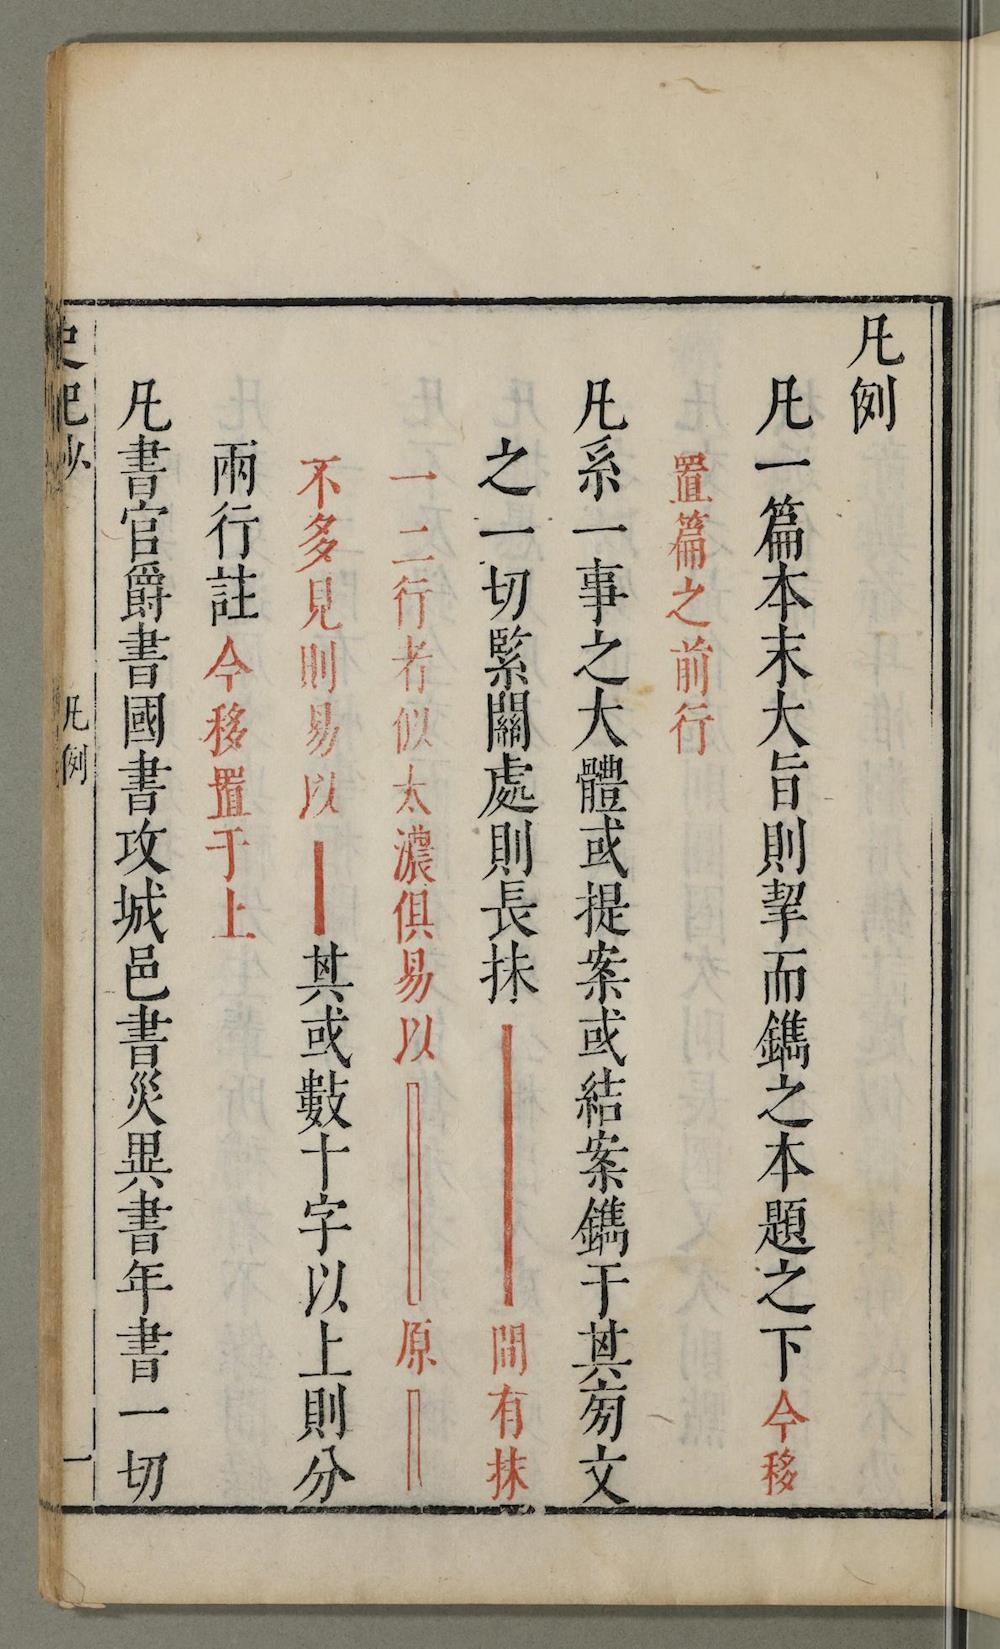 凡例
凡一篇本末大旨則挈而鐫之本題之下今移
置篇之前行
凡系一事之大體或提案或結案鐫于其旁文
之一切緊關處則長抹間有抹
一二行者似太濃俱易以原
不多見則易以其或數十字以上則分
兩行註今移置于上
凡書官爵書國書攻城邑書災異書年書一切
史記抄
凡例
一